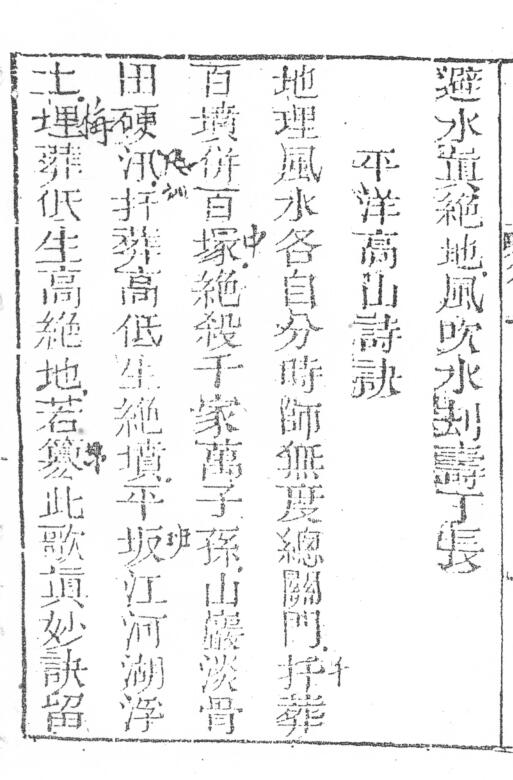 避水眞絕地風吹水刦壽丁長
平洋高山詩訣
地理風水各自分時師無度總關門扦葬
千
百墳併百塚絕殺千家萬子孫山巖淡骨
中
田硬汛扦葬高低生絕墳平坂江河湖浮
班
土埋葬低生高絕地若纂此歌眞妙訣留